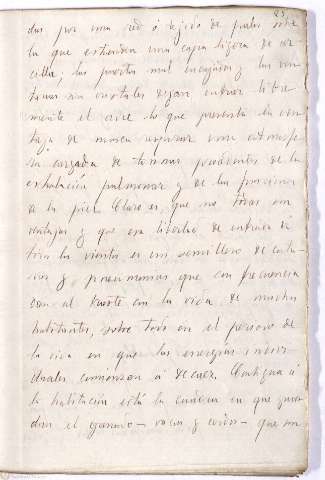 das por una red ó tejido de palos sobre
la que extienden una capa ligera de ar
cilla; las puertas mal encajadas y las ven
tanas sin cristales dejan entrar libre
mente el aire lo que presenta la ven
taja de nunca respirar una atmosfe
ra cargada de toxinas procedentes de la
exhalación pulmonar y de las funciones
de la piel. Claro es, que no todas son
ventajas y que esa libertad de entrada á
todos los vientos es un semillero de catar
ros y pneumonias que con frecuencia
dan al traste con la vida de muchos
habitantes, sobre todo en el periodo de
la vida en que las energías indivi
duales comienzan á decaer. Contigua á
la habitación está la cuadra en que guar
dan el ganado - vacas y cerdos - que son